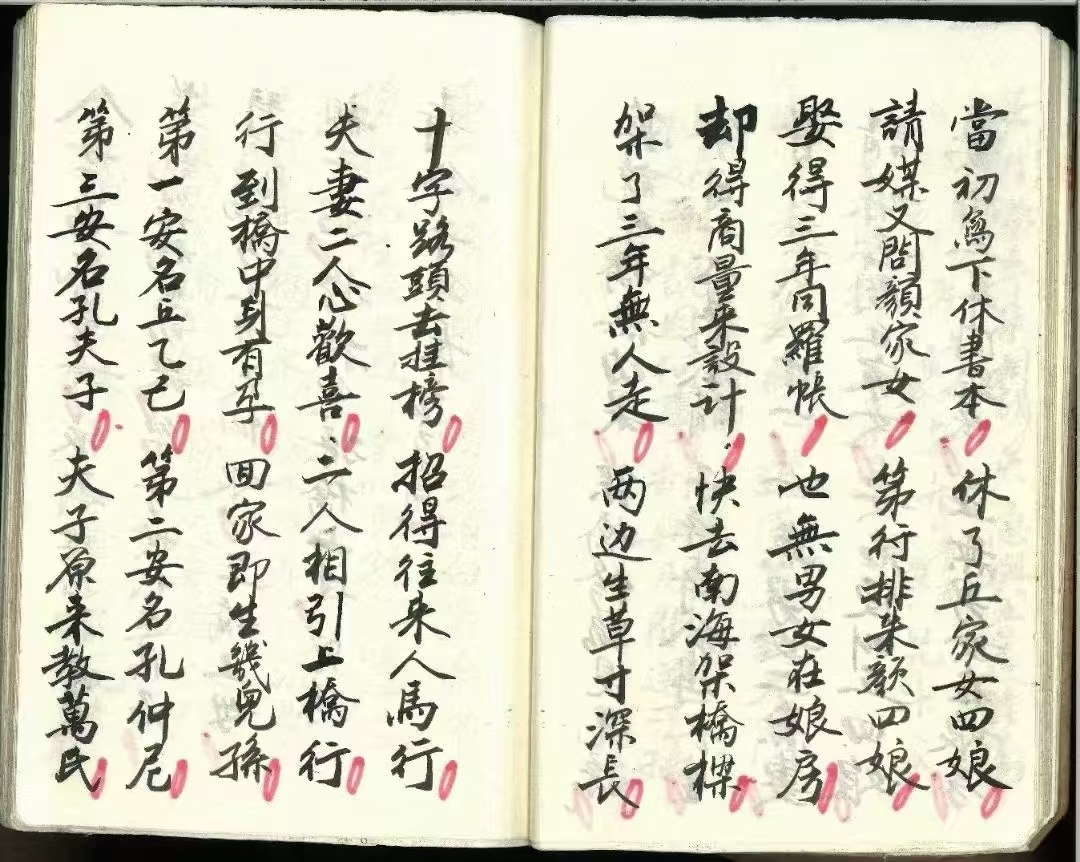 當初為下休書本 休了丘家女四娘
請媒又問顏家女 第行排來顏四娘
娶得三年同羅帳 也無男女在娘房
却得商量來設計 快去南海架橋樑
架了三年無人走 两边生草寸深長
十字路頭去挂榜 招得往来人馬行
夫妻二人心歡喜 二人相引上橋行
行到橋中身有孕 回家即生幾兒孫
第一安名丘乙己 第二安名孔仲尼
第三安名孔夫子 夫子原来教萬民